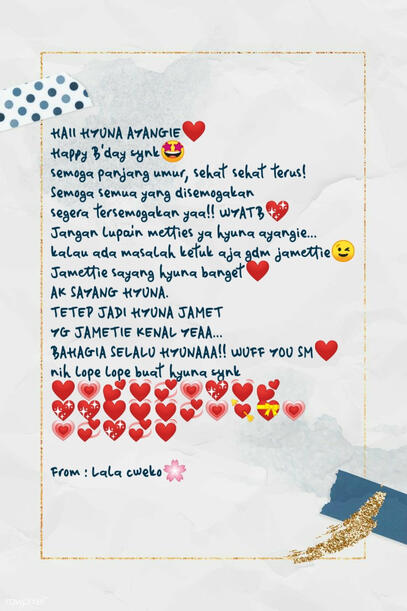 HAII HYUNA AYANGIE❤️
Happy B'day synk🤩
semoga panjang umur, sehat sehat terus!
Semoga semua yang disemogakan
segera tersemogakan yaa!! WYATB💖
Jangan lupain metties ya hyuna ayangie...
kalau ada masalah ketuk aja gdm jamettie😉
Jamettie sayang hyuna banget❤️
AK SAYANG HYUNA.
TETEP JADI HYUNA JAMET
YG JAMETIE KENAL YEAA...
BAHAGIA SELALU HYUNAAA!! WUFF YOU SM❤️
nih lope lope buat hyuna synk
From : Lala cweko🌸
rawpixel